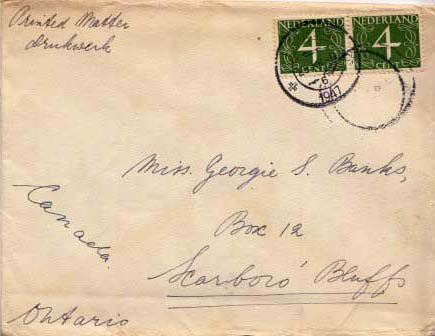 Printed Matter
drukwerk
NEDERLAND
4
CENT
NEDERLAND
4
1947
Miss. Georgie S. Banks,
Box 12
Scarboro' Bluffs
Canada.
Ontario